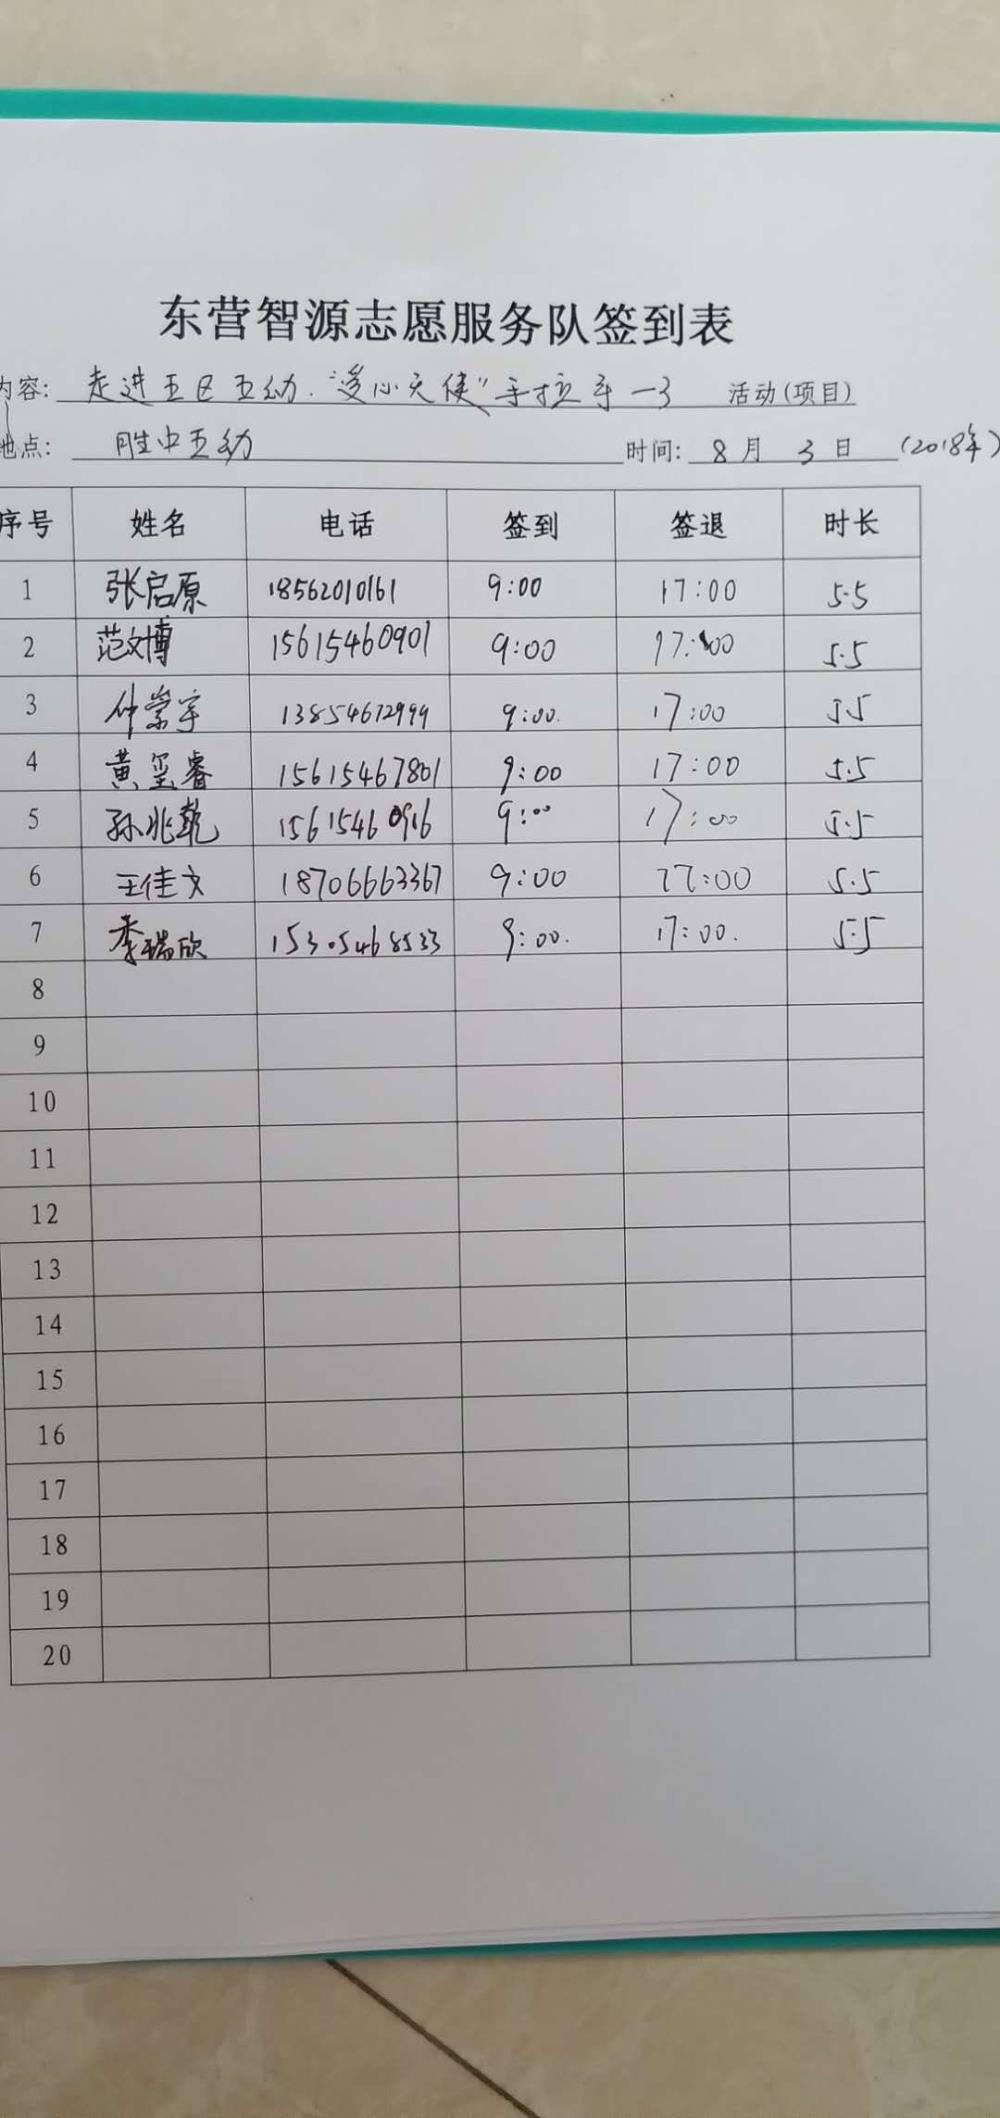 东营智源志愿服务队签到表
内容: 走进五区五幼.“爱心天使”手拉手一3 活动(项目)
地点: 胜中五幼 时间: 8 月 3 日 (2018年)
序号 姓名 电话 签到 签退 时长
1 张启原 18562010161 9:00 17:00 5.5
2 范文博 15615460901 9:00 17:00 5.5
3 仲崇宇 13854672999 9:00. 17:00 5.5
4 黄玺睿 15615467801 9:00 17:00 5.5
5 孙兆乾 15615460916 9:00 17:00 5.5
6 王佳文 18706663367 9:00 17:00 5.5
7 李瑞欣 15305468533 9:00. 17:00. 5.5
8
9
10
11
12
13
14
15
16
17
18
19
20